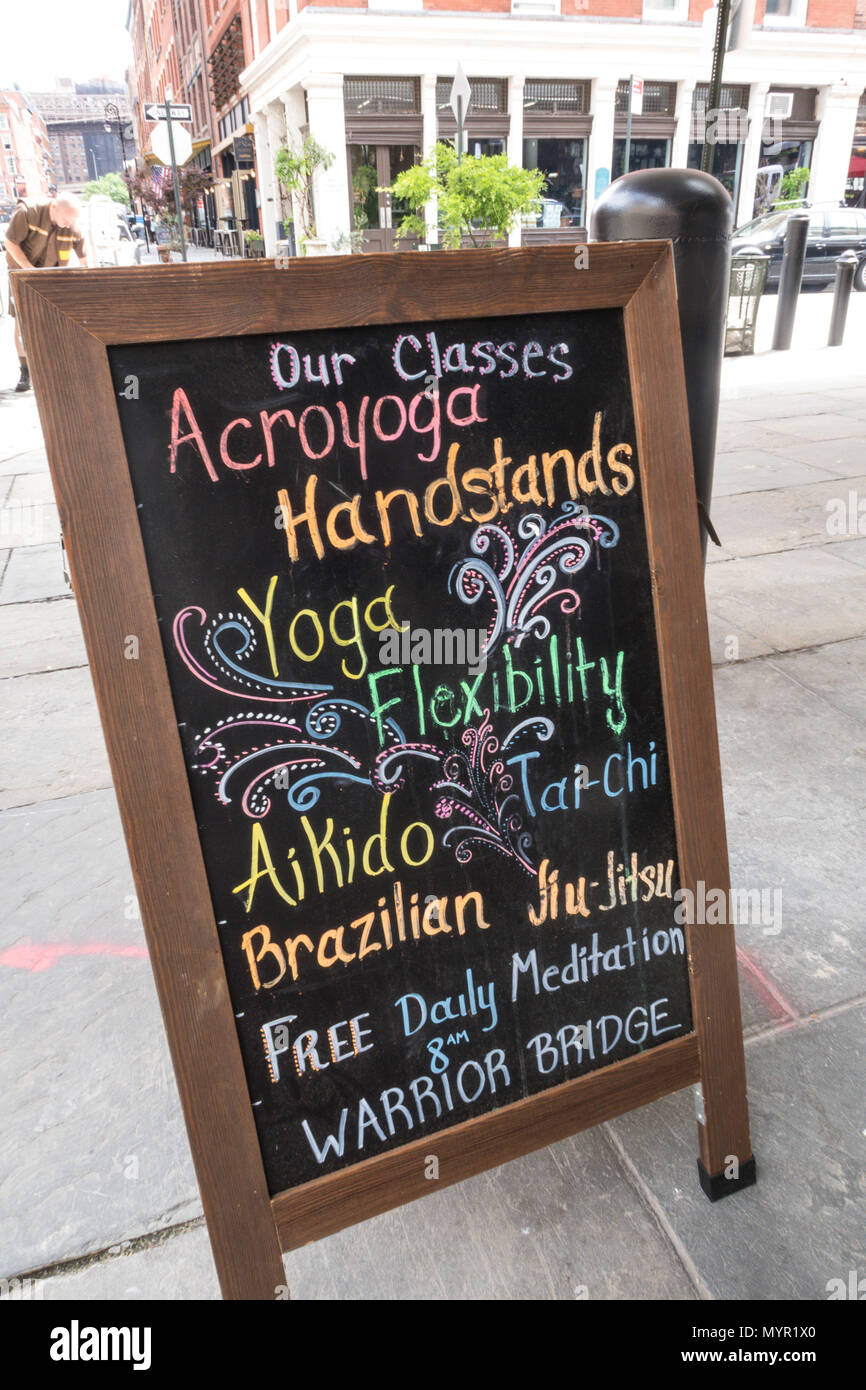 Our Classes
Acroyoga
Handstands
Yoga
Flexibility
Tai-Chi
AiKido
Brazilian Jiu-Jitsu
FREE Daily Meditation
8AM
WARRIOR BRIDGE
a
alamy
alamy
a
a
Image ID: MYR1X0
www.alamy.com